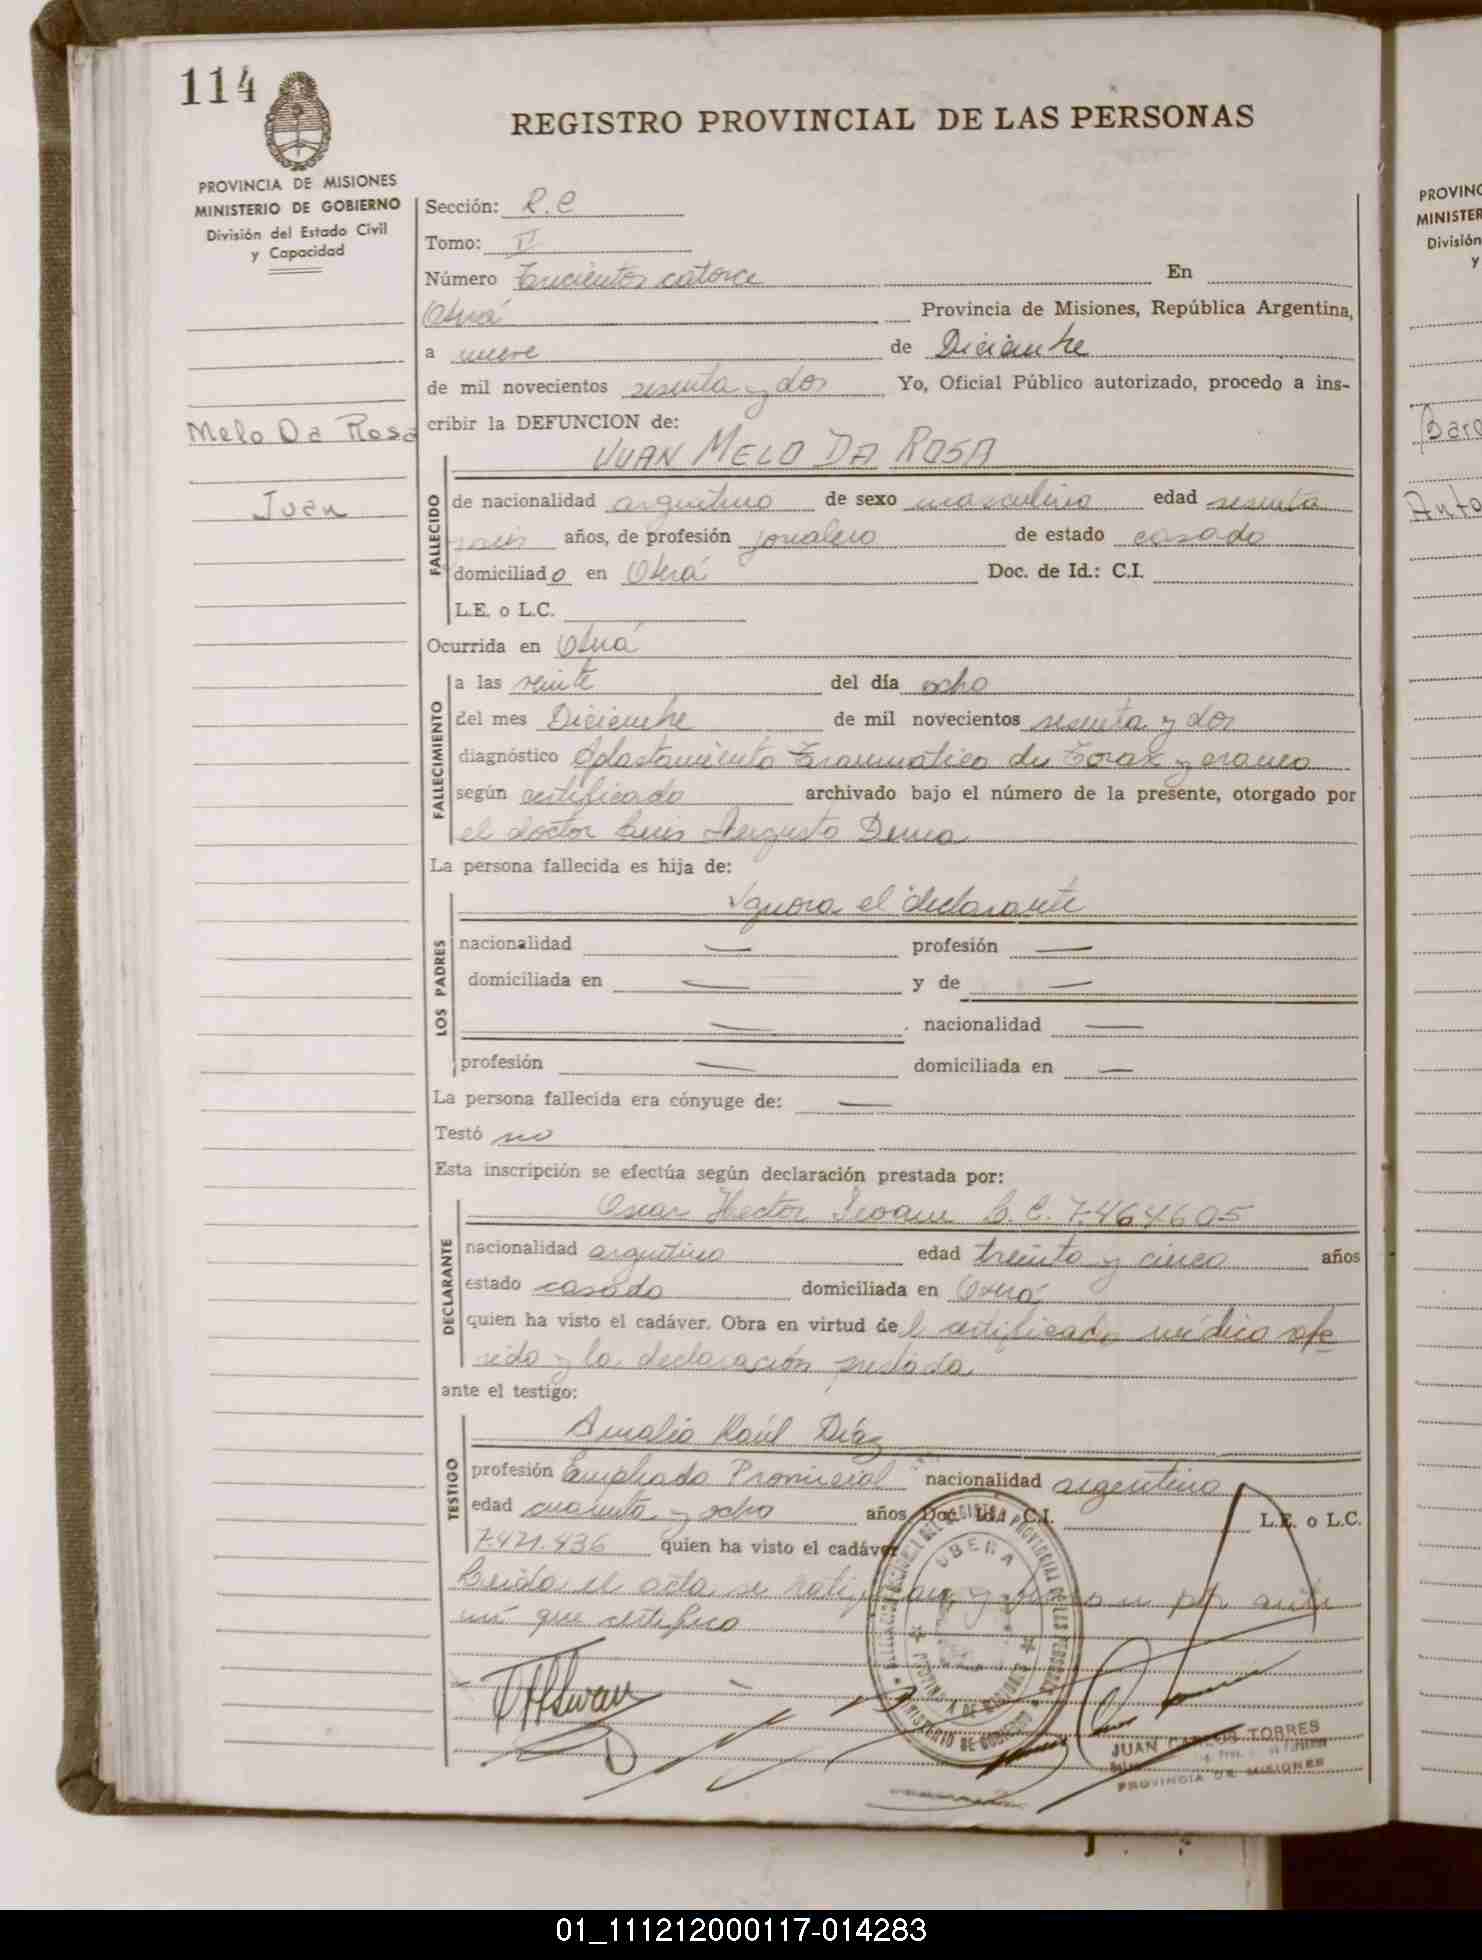 114
REGISTRO PROVINCIAL DE LAS PERSONAS
PROVINCIA DE MISIONES
MINISTERIO DE GOBIERNO
División del Estado Civil
y Capacidad
Melo Da Rosa
Juan
Sección: R.C
Tomo: II
Número Trescientos catorce En
Oberá Provincia de Misiones, República Argentina,
a nueve de Diciembre
de mil novecientos sesenta y dos Yo, Oficial Público autorizado, procedo a ins-
cribir la DEFUNCION de:
JUAN MELO DA ROSA
FALLECIDO
de nacionalidad argentino de sexo masculino edad sesenta
años, de profesión jornalero de estado casado
domiciliado en Oberá Doc. de Id.: C.I.
L.E. o L.C.
Ocurrida en Oberá
FALLECIMIENTO
a las veinte del día ocho
del mes Diciembre de mil novecientos sesenta y dos
diagnóstico Aplastamiento Traumatico de Torax y craneo
según certificado archivado bajo el número de la presente, otorgado por
el doctor Luis Augusto Derna
La persona fallecida es hija de:
LOS PADRES
Ignora el declarante
nacionalidad — profesión —
domiciliada en — y de —
— nacionalidad —
profesión — domiciliada en —
La persona fallecida era cónyuge de: —
Testó no
Esta inscripción se efectúa según declaración prestada por:
DECLARANTE
Oscar Hector Seoane L.E. 7.464.605
nacionalidad argentino edad treinta y cinco años
estado casado domiciliada en Oberá
quien ha visto el cadáver. Obra en virtud del certificado médico refe
rido y la declaración prestada
ante el testigo:
TESTIGO
Amalio Raúl Díaz
profesión Empleado Provincial nacionalidad argentina
edad cuarenta y ocho años Doc. Id.: C.I. L.E. o L.C.
7.471.436 quien ha visto el cadáver
Leida el acta se ratifican y firman por ante
mí que certifico
OBERA
PROVINCIA DE MISIONES
MINISTERIO DE GOBIERNO
JUAN CARLOS TORRES
PROVINCIA DE MISIONES
PROVINC
MINISTER
División
y
Bar
Anto
01_111212000117-014283